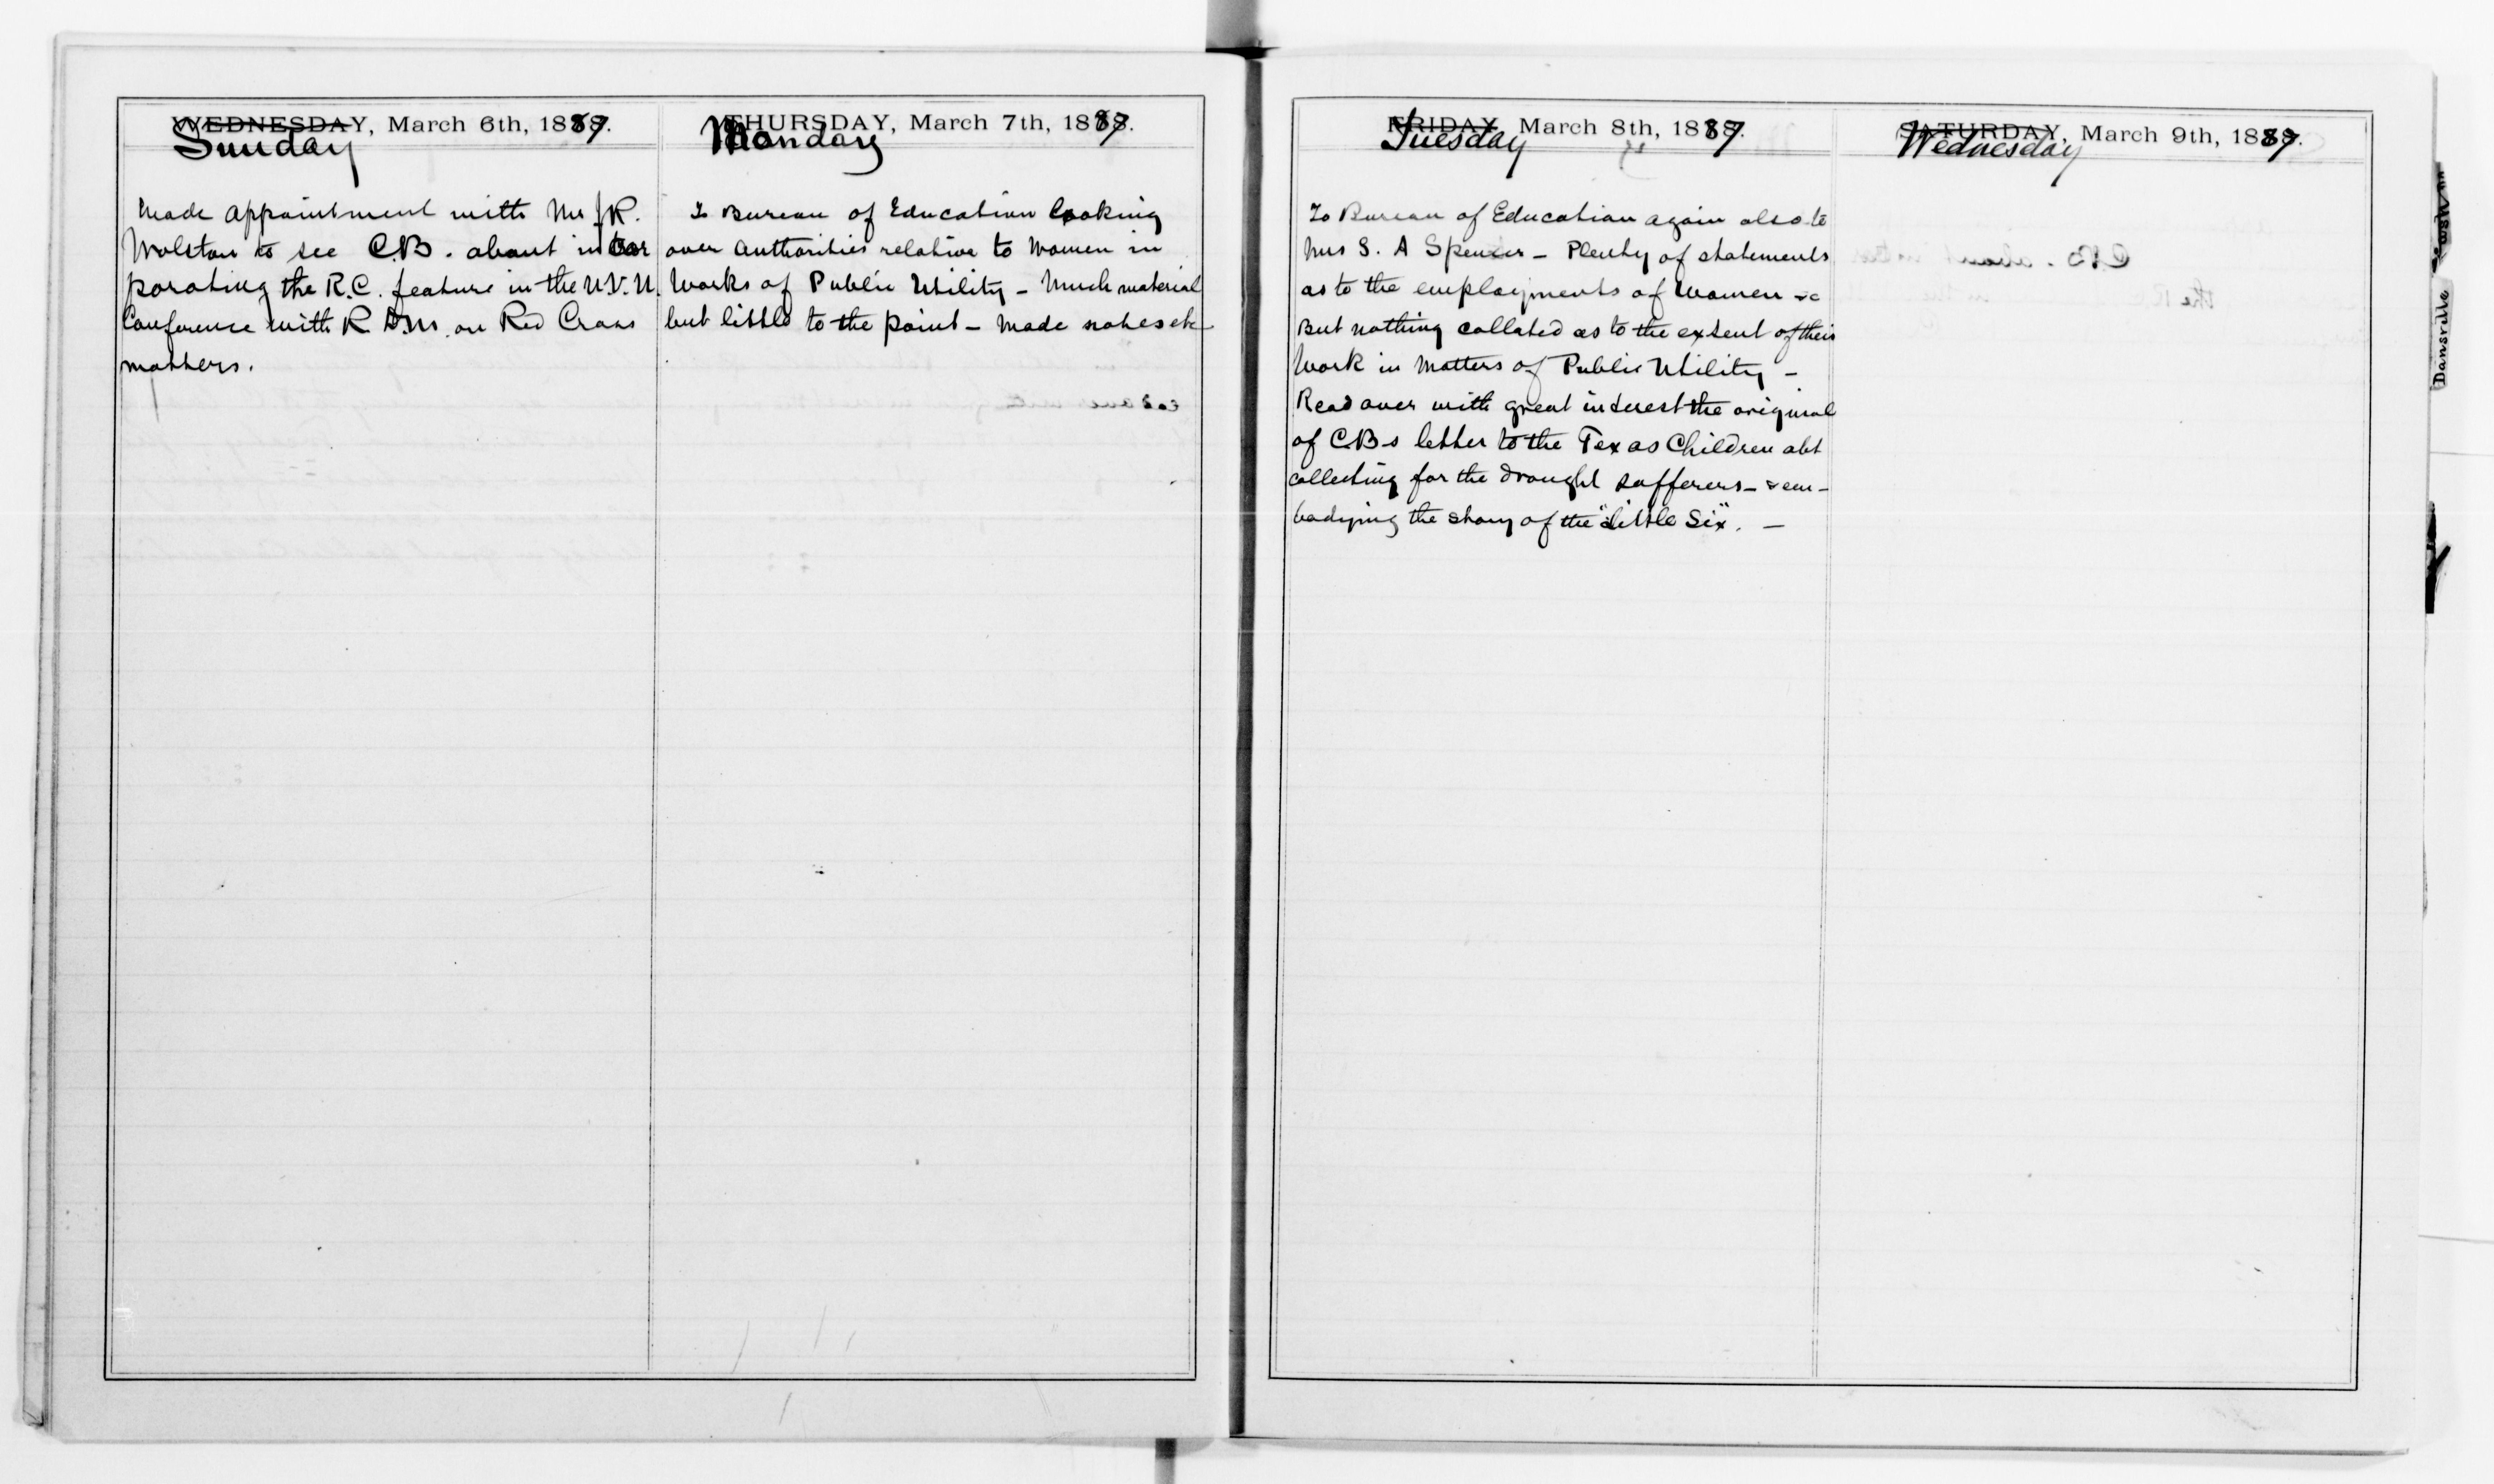 WEDNESDAY, March 6th, 1887.
Sunday
Made appointment with Mr J R.
Wolston to see C.B. about incor
porating the R.C. feature in the U.V.U.
Conference with R D.M. on Red Cross
matters.
THURSDAY, March 7th, 1887.
Monday
To Bureau of Education looking
over authorities relative to Women in
Works of Public Utility – Much material
but little to the point – Made notes etc
FRIDAY, March 8th, 1887.
Tuesday
To Bureau of Education again also to
Mrs S. A Spencer – Plenty of statements
as to the employments of Women &c
But nothing collated as to the extent of their
Work in Matters of Public Utility –
Read over with great interest the original
of CBs letter to the Texas Children abt
collecting for the drought sufferers – & em-
bodying the story of the "Little Six". –
SATURDAY, March 9th, 1887.
Wednesday
Dansville